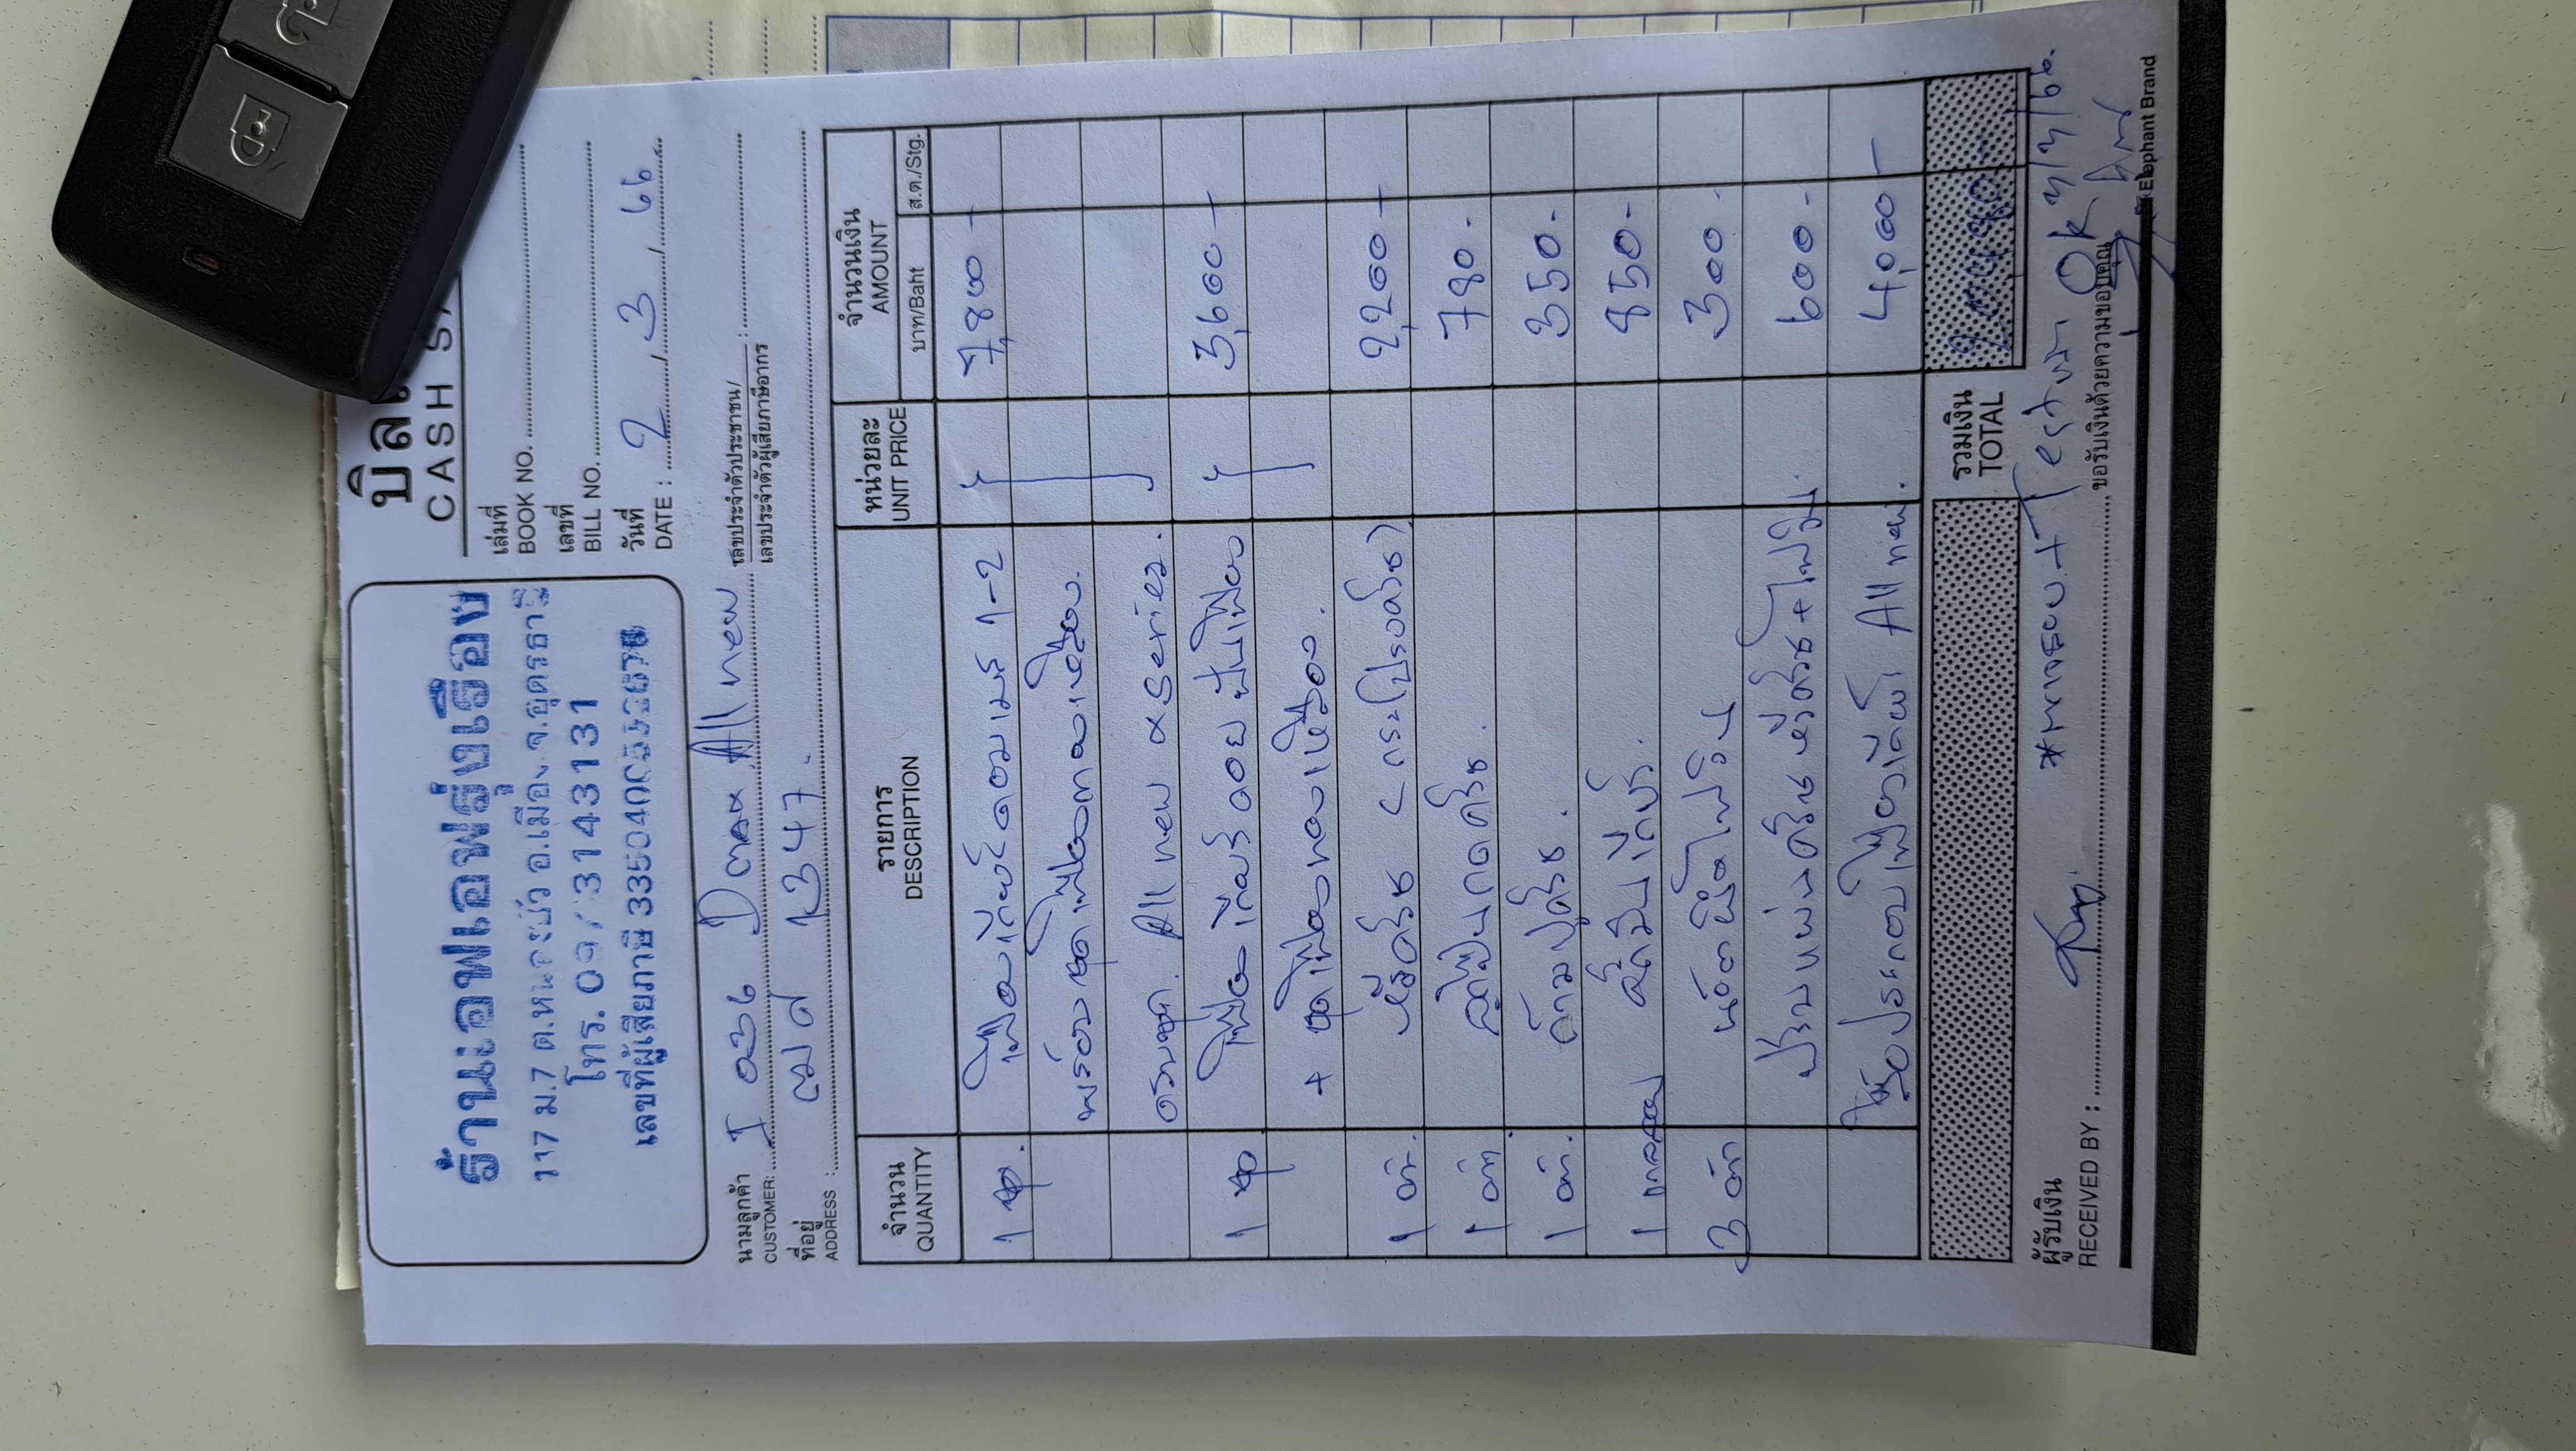 บิล
CASH SA
ร้านเอฟเอฟรุ่งเรือง
117 ม.7 ต.หนองบัว อ.เมือง จ.อุดรธานี
โทร. 09 / 3143131
เลขที่ผู้เสียภาษี
เล่มที่
BOOK NO.
เลขที่
BILL NO.
วันที่
DATE : 2 / 3 / 66
นามลูกค้า
CUSTOMER: I 036 Dmax All new
เลขประจำตัวประชาชน/
เลขประจำตัวผู้เสียภาษีอากร :
ที่อยู่
ADDRESS : ฒศ 1347.
จำนวน QUANTITY รายการ DESCRIPTION หน่วยละ UNIT PRICE จำนวนเงิน AMOUNT
บาท/Baht ส.ต./Stg.
1 ชุด. เฟืองเกียร์ 1-2 7,800 -
พร้อมชุดเฟืองทองเหลือง.
ครบชุด. All new α series.
1 ชุด เฟืองเกียร์ถอย 3,600 -
+ ชุดเฟืองทองเหลือง.
1 ตัว. หวีคลัช (กระโปรงคลัช) 2,200 -
1 ตัว ลูกปืนกดคลัช. 780 -
1 ตัว. ก้ามปูคลัช. 350 -
1 แกลลอน น้ำมันเกียร์. 850 -
3 ตัว น๊อตยึดไฟวีล 300 -
ปาดแผ่นคลัช หวีคลัช + ไฟวีล. 600 -
รื้อประกอบเฟืองเกียร์ All new. 4,000 -
รวมเงิน
TOTAL 20,480 -
* Test Ok 3/3/66.
ผู้รับเงิน
RECEIVED BY : ขอรับเงินด้วยความขอบคุณ
Elephant Brand